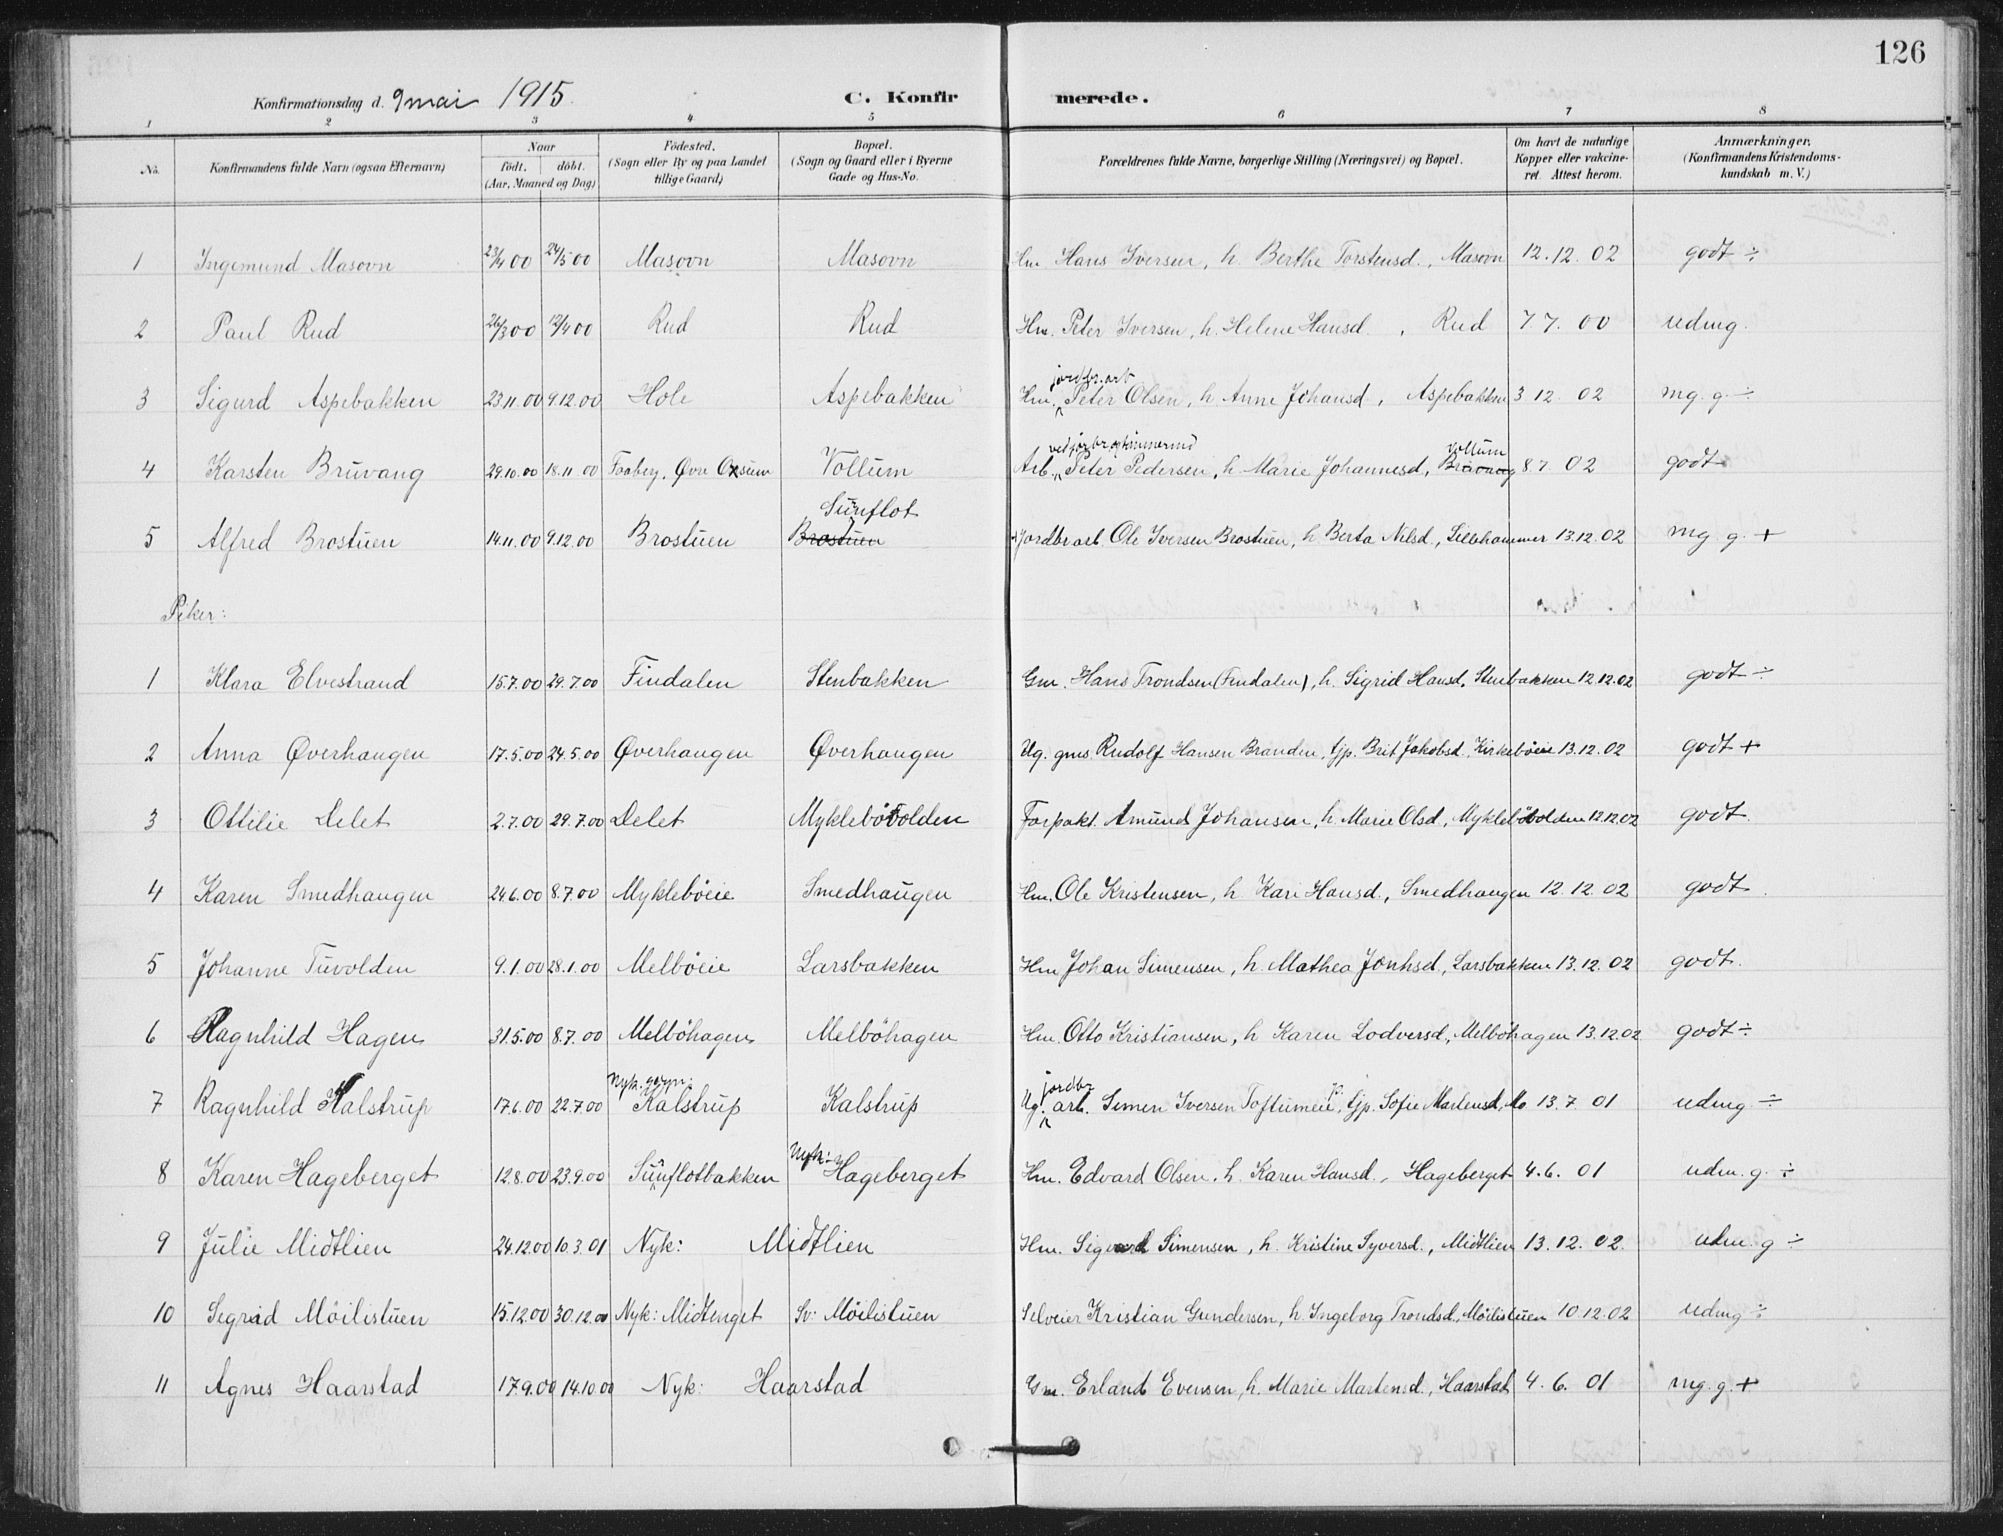 126
Konfirmationsdag d. 9 mai 1915. C. Konfir merede.
1 2 3 4 5 6 7 8
No. Konfirmandens fulde Navn (ogsaa Efternavn) Naar födt. döbt. (Aar, Maaned og Dag) Födested. (Sogn eller By og paa Landet tillige Gaard) Bopæl. (Sogn og Gaard eller i Byerne Gade og Hus-No. Forældrenes fulde Navne, borgerlige Stilling (Næringsvei) og Bopæl. Om havt de naturlige Kopper eller vakcineret. Attest herom. Anmærkninger. (Konfirmandens Kristendomskundskab m. V.)
1 Ingemund Masovn 23/4 00 24/5 00 Masovn Masovn Hm. Hans Iversen, h. Berthe Torstensd., Masovn 12.12.02 godt ÷
2 Paul Rud 26/3 00 12/4 00 Rud Rud Hm. Peter Iversen, h. Helene Hansd., Rud 7 7. 00 udmg.
jordbr.arb
3 Sigurd Aspebakken 23.11.00 9.12.00 Hole Aspebakken Hm. Peter Olsen, h. Anne Johansd., Aspebakken 3 12. 02 mg. g. ÷
Vollum
4 Karsten Bruvang 29.10.00 18.11 00 Faaberg, Øvre Oxsum Vollum Arb. Peter Pedersen, h. Marie Johannesd, Bruvang 8 7 02 godt
Sunflot
5 Alfred Brostuen 14.11.00 9.12.00 Brostuen Brostuen Jordbrarb. Ole Iversen Brostuen, h. Berta Nilsd, Lillehammer 13.12.02 mg. g. +
Piker:
1 Klara Elvestrand 15.7.00 29.7.00 Findalen Stenbakken Gm. Hans Trondsen (Findalen), h. Sigrid Hansd. Stenbakken 12.12.02 godt ÷
2 Anna Øverhaugen 17.5.00 24.5.00 Øverhaugen Øverhaugen Ug. gms. Rudolf Hansen Branden, tjp. Brit Jakobsd. Kirkeböeie 13.12.02 godt +
3 Ottilie Delet 2.7.00 29.7.00 Delet Myklebövolden Forpakt. Amund Johansen, h. Marie Olsd, Myklebövolden 12.12.02 godt.
4 Karen Smedhaugen 24.6.00 8.7.00 Mykleböeie Smedhaugen Hm. Ole Kristensen, h. Kari Hansd., Smedhaugen 12.12.02 godt.
5 Johanne Tuvolden 9.1.00 28.1.00 Melböeie Larsbakken Hm Johan Simensen, h. Mathea Jonhsd, Larsbakken 13.12.02 godt.
6 Ragnhild Hagen 31.5.00 8.7.00 Melböhagen Melböhagen Hm. Otto Kristiansen, h Karen Lodversd., Melböhagen 13.12.02 godt ÷
jordbr
7 Ragnhild Kalstrup 17.6.00 22.7.00 Kalstrup Kalstrup Ug. arb. Simen Iversen Toftumeie, tjp. Sofie Martensd, Mo 13.7 01 udmg ÷
8 Karen Hageberget 12.8.00 23.9.00 Sunflotbakken Nyk: Hageberget Hm. Edvard Olsen. h. Karen Hansd., Hageberget 4.6. 01 udm. g. ÷
9 Julie Midtlien 24.12.00 10.3.01 Nyk: Midtlien Hm. Sigurd Simensen, h. Kristine Syversd., Midtlien 13.12.02. udm. g ÷
10 Sigrid Möilistuen 15.12.00 30.12.00 Nyk: Midtenget Sv: Möilistuen Selveier Kristian Gundersen, h. Ingeborg Trondsd., Möilistuen 10.12.02 udmg ÷
11 Agnes Haarstad 17.9.00 14.10.00 Nyk: Haarstad Gm. Erland Evensen, h. Marie Martensd., Haarstad 4.6. 01 mg. g. +